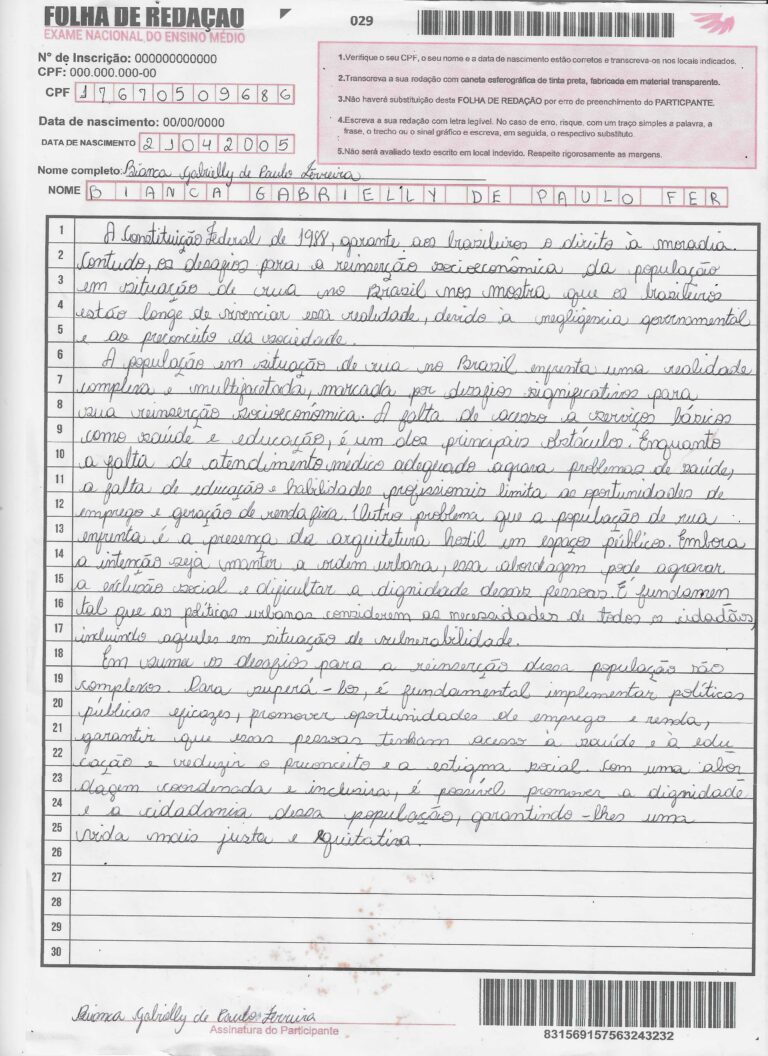 FOLHA DE REDAÇÃO
EXAME NACIONAL DO ENSINO MÉDIO
029
Nº de Inscrição: 000000000000
CPF: 000.000.000-00
CPF 17670509686
Data de nascimento: 00/00/0000
DATA DE NASCIMENTO 21042005
1.Verifique o seu CPF, o seu nome e a data de nascimento estão corretos e transcreva-os nos locais indicados.
2.Transcreva a sua redação com caneta esferográfica de tinta preta, fabricada em material transparente.
3.Não haverá substituição desta FOLHA DE REDAÇÃO por erro de preenchimento do PARTICIPANTE.
4.Escreva a sua redação com letra legível. No caso de erro, risque, com um traço simples a palavra, a
frase, o trecho ou o sinal gráfico e escreva, em seguida, o respectivo substituto.
5.Não será avaliado texto escrito em local indevido. Respeite rigorosamente as margens.
Nome completo: Bianca Gabrielly de Paulo Ferreira
NOME BIANCA GABRIELLY DE PAULO FER
1 A Constituição Federal de 1988, garante aos brasileiros o direito à moradia.
2 Contudo, os desafios para a reinserção socioeconômica da população
3 em situação de rua no Brasil nos mostra que os brasileiros
4 estão longe de vivenciar essa realidade, devido à negligência governamental
5 e ao preconceito da sociedade.
6 A população em situação de rua no Brasil enfrenta uma realidade
7 complexa e multifacetada, marcada por desafios significativos para
8 sua reinserção socioeconômica. A falta de acesso a serviços básicos
9 como saúde e educação, é um dos principais obstáculos. Enquanto
10 a falta de atendimento médico adequado agrava problemas de saúde,
11 a falta de educação e habilidades profissionais limita as oportunidades de
12 emprego e geração de renda fixa. Outro problema que a população de rua
13 enfrenta é a presença da arquitetura hostil em espaços públicos. Embora
14 a intenção seja manter a ordem urbana, essa abordagem pode agravar
15 a exclusão social e dificultar a dignidade dessas pessoas. É fundamen
16 tal que as políticas urbanas considerem as necessidades de todos os cidadãos,
17 incluindo aqueles em situação de vulnerabilidade.
18 Em suma os desafios para a reinserção dessa população são
19 complexos. Para superá-los, é fundamental implementar políticas
20 públicas eficazes, promover oportunidades de emprego e renda,
21 garantir que essas pessoas tenham acesso à saúde e à edu
22 cação e reduzir o preconceito e a estigma social. Com uma abor
23 dagem coordenada e inclusiva, é possível promover a dignidade
24 e a cidadania dessa população, garantindo-lhes uma
25 vida mais justa e equitativa.
26
27
28
29
30
Bianca Gabrielly de Paulo Ferreira
Assinatura do Participante
831569157563243232